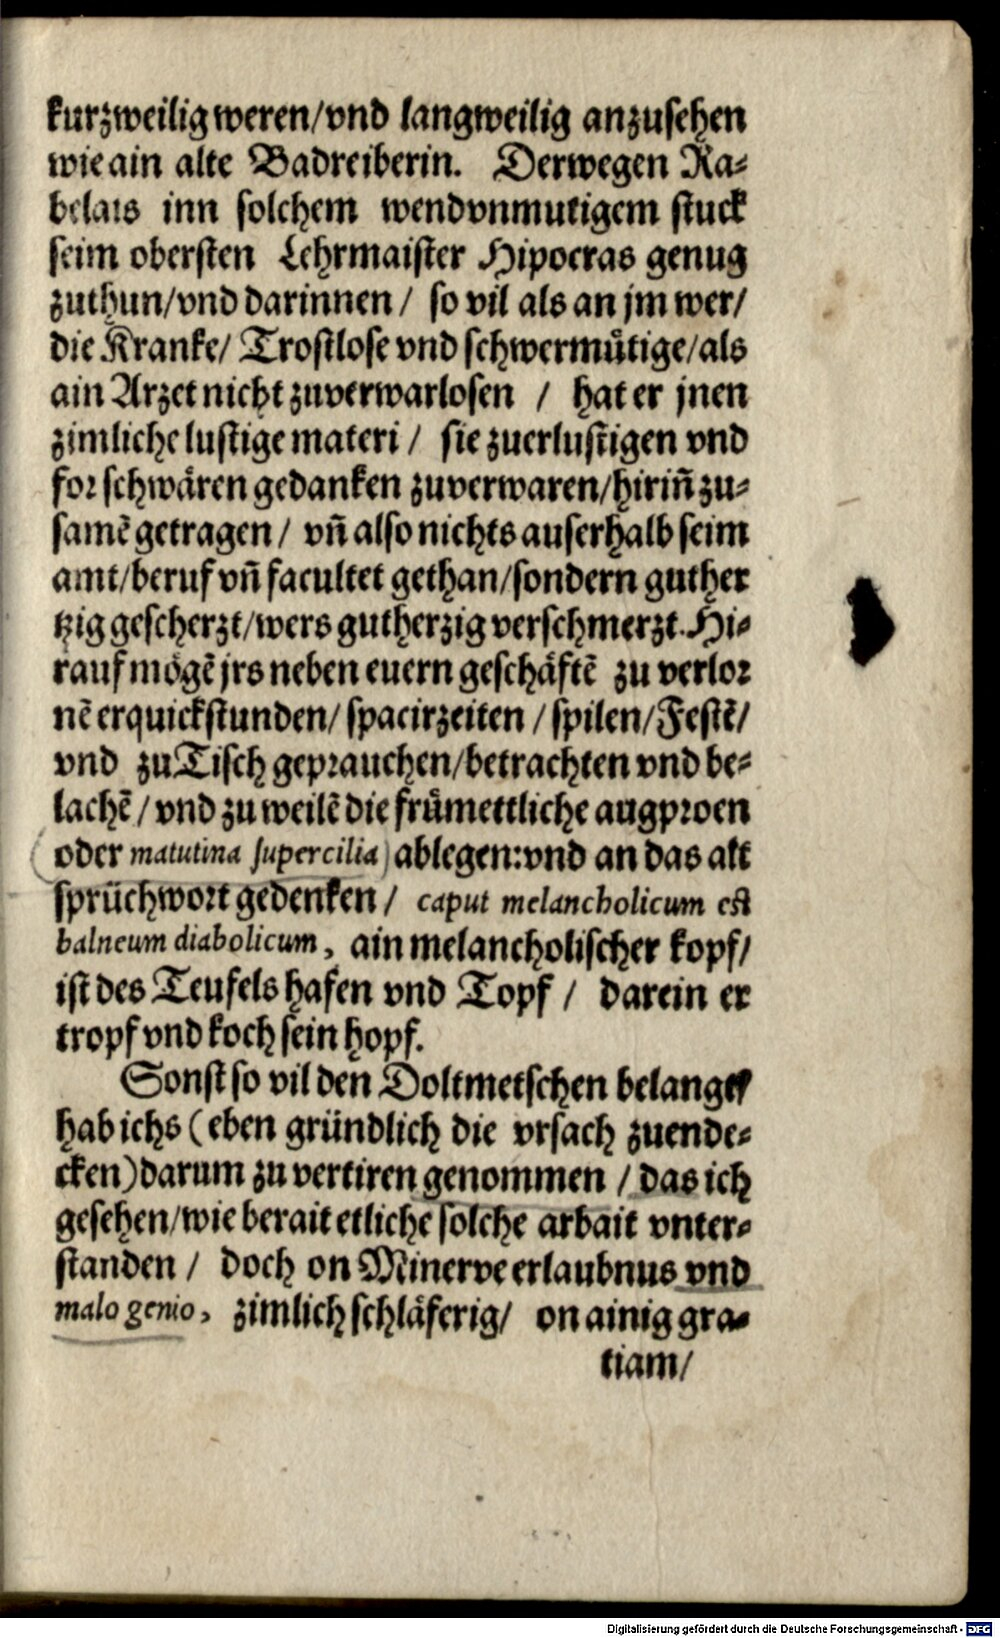 kurzweilig weren/vnd langweilig anzusehen
wie ain alte Badreiberin. Derwegen Ra-
belais inn solchem wendvnmutigem stuck
seim obersten Lehrmaister Hipocras genug
zuthun/vnd darinnen / so vil als an jm wer/
die Kranke/ Trostlose vnd schwermütige/als
ain Arzet nicht zuverwarlosen / hat er jnen
zimliche lustige materi / sie zuerlustigen vnd
for schwären gedanken zuverwaren/hiriñ zu-
samẽ getragen / vñ also nichts auserhalb seim
amt/beruf vñ facultet gethan/sondern guther
tzig gescherzt/wers gutherzig verschmerzt. Hi-
rauf mögẽ jrs neben euern geschäftẽ zu verlor
nẽ erquickstunden/ spacirzeiten / spilen/Festẽ/
vnd zu Tisch geprauchen/betrachten vnd be-
lachẽ / vnd zu weilẽ die frümettliche augproen
oder matutina supercilia ablegen: vnd an das alt
sprüchwort gedenken / caput melancholicum est
balneum diabolicum, ain melancholischer kopf/
ist des Teufels hafen vnd Topf / darein er
tropf vnd koch sein hopf.
Sonst so vil den Doltmetschen belangt/
hab ichs (eben gründlich die vrsach zuende-
cken) darum zu vertiren genommen / das ich
gesehen/wie berait etliche solche arbait vnter-
standen / doch on Minerve erlaubnus vnd
malo genio, zimlich schläferig/ on ainig gra-
tiam/
Digitalisierung gefördert durch die Deutsche Forschungsgemeinschaft - DFG